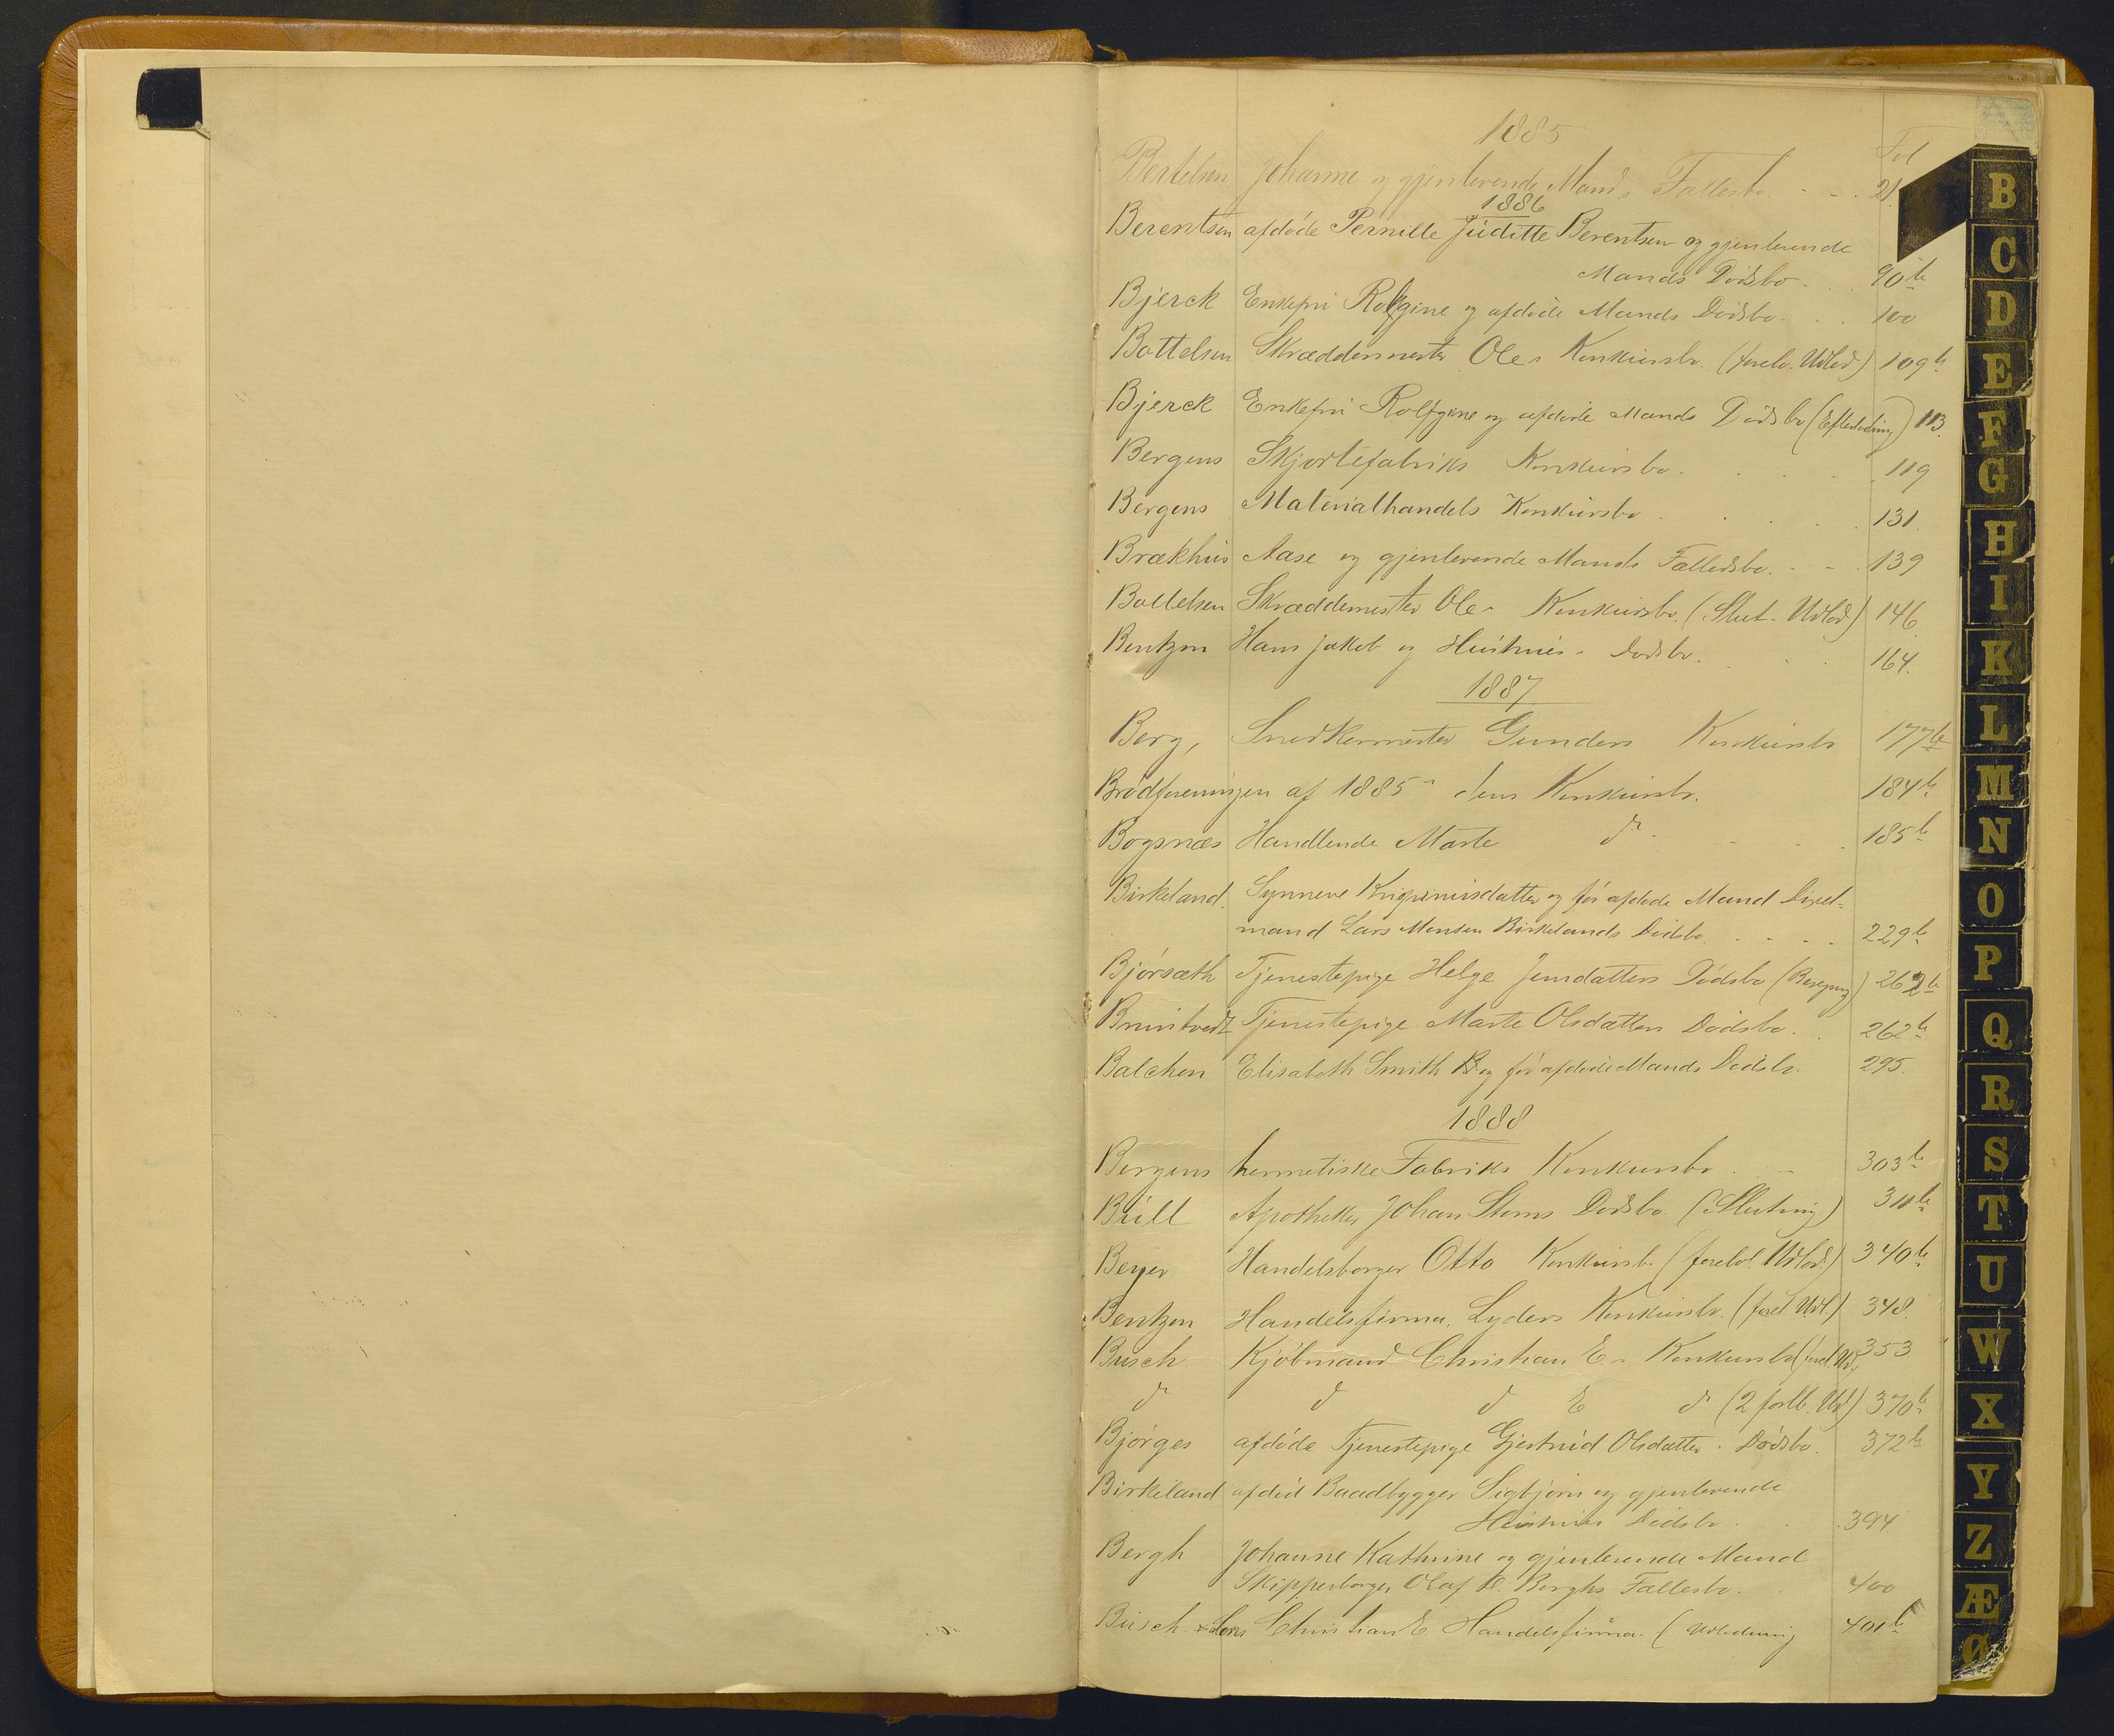 1885
Fol
Bertelsen Johanne og gjenlevende Mands Fællesbo - - . 21.
1886
Berentsen afdøde Pernille Juditte Berentsen og gjenlevende
Mands Dødsbo . 90b
Bjerck Enkefru Rolfgine og afdøde Mands Dødsbo . . 100
Bottelsen Skræddermester Ole s Konkursbo. (foreb. Udlod) 109b
Bjerck Enkefru Rolfgine og afdøde Mands Dødsbo (Efterlodning) 113.
Bergens Skjortefabriks Konkursbo . . . . 119
Bergens Materialhandels Konkursbo . . . . 131
Brækhus Aase og gjenlevende Mands Fælledsbo. - - . 139
Bottelsen Skræddemester Ole s Konkursbo. (Slut-Udlod) 146.
Bentzen Hans Jakob og Hustrues Dødsbo. . . . 164.
1887
Berg, Snedkermester Gunders Konkursbo 177b
Brødforeningen af 1885 dens Konkursbo. 184b
Bogsnæs Handlende Marte do . . . 185b
Birkeland. Synneve og før afdøde Mand
mand Lars Monsen Birkelands Dødsbo . . . . 229b
Bjørsæth Tjenestepige Helge Jensdatters Dødsbo 262b
Tjenestepige Marte Olsdatters Dødsbo . 262b
Balchen Elisabeth Smith B og før afdøde Mands Dødsbo. 295.
1888
Bergens hermetiske Fabriks Konkursbo . - 303b
Büll Apotheker Johan Storms Dødsbo (Slutning) 311b
Beyer Handelsborger Otto Konkursb. (forebl Udlod.) 340b
Bentzen Handelsfirma, Lyders Konkursbo. (forel Udl) 348.
Busch Kjøbmand Christian E. s Konkursbo (forel. Ud. 353
do do do E do (2 forlb. Udl) 370b
Bjørges afdøde Tjenestepige Gjertrud Olsdatters Dødsbo. 372b
Birkeland afdød Baadbygger Sigbjørn og gjenlevende
Hustrues Dødsbo . . 394
Bergh Johanne Kathrine og gjenlevende Mand
Skipperborger Olaf Berghs Fællesbo. . 400
Busch & Søns Christian E Handelsfirma. (Udlodning 401b
B
C
D
E
F
G
H
I
K
L
M
N
O
P
Q
R
S
T
U
W
X
Y
Z
Æ
Ø